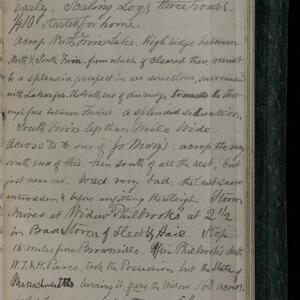 early. Scaling Logs three hours.
1/4 10 started for home.
Across North Twin Lake. High ridge between
North & South Twin, from which if cleared there must
be a splendid prospect in all directions, surrounded
with Lakes far. The South end of this ridge towards the Tho-
rofare between Twins, a splendid situation.
South Twin less than Mile Wide.
Across to one of Jo Mary's, across the very
north end of this, then south of all the rest, but
just near one, road very bad, the last snow
untrodden & before anything the sleigh. Storm
Arrived at Widow Philbrook's at 2 1/2
in Bad Storm of Sleet & Hail. Stop.
16 miles from Brownville. After Philbrook's death
W. T. & H. Pierce, took the Possession, but the State of
Massachusetts owning it gave the Widow 160 acres